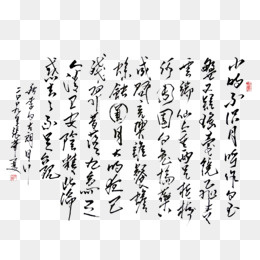 小时不识月呼作白玉
盘又疑瑶台镜飞在青
云端仙人垂两足桂树
何團團白兔捣药
成问言与谁餐蟾
蜍蚀圆影大明夜已
残羿昔落九乌天
人清且安陰精此淪
惑去去不足觀
李白古朗月行